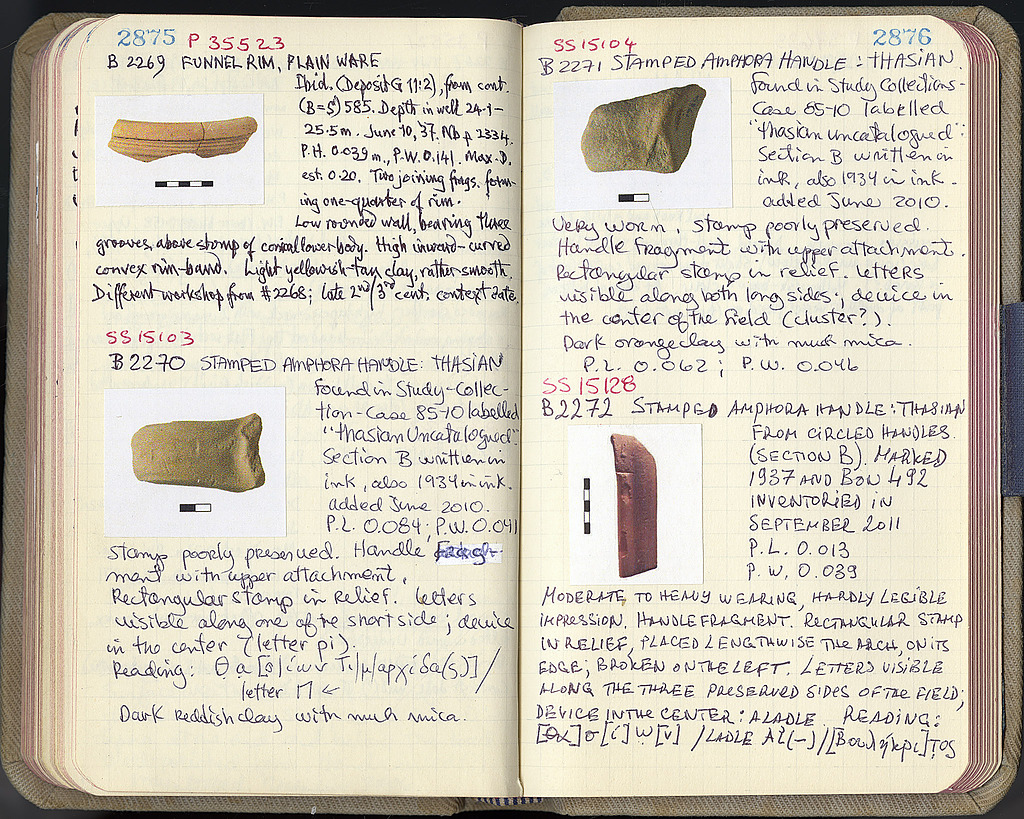 2875 P 35523
B 2269 FUNNEL RIM, PLAIN WARE
Ibid. (Deposit G 11:2), from cont.
(B=5) 585. Depth in well 24.1-
25.5 m. June 10, 37. Nb p 2334.
P.H. 0.039 m., P.W. 0.141. Max. D.
est. 0.20. Two joining frags. form-
ing one-quarter of rim.
Low rounded wall, bearing three
grooves, above stump of conical lower body. High inward-curved
convex rim-band. Light yellowish-tan clay, rather smooth.
Different workshop from #2268; late 2nd/3rd cent. context date.
SS 15103
B 2270 STAMPED AMPHORA HANDLE: THASIAN
Found in Study-Collec-
tion-Case 85-10 labelled
"Thasian Uncatalogued":
Section B written in
ink, also 1934 in ink.
added June 2010.
P.L. 0.084; P.W. 0.041
Stamp poorly preserved. Handle
ment with upper attachment.
Rectangular stamp in relief. Letters
visible along one of the short side; device
in the center (letter pi).
Reading: Θα[σ]ίων
letter Π ←
Dark reddish clay with much mica.
SS 15104 2876
B 2271 STAMPED AMPHORA HANDLE: THASIAN.
Found in Study Collections-
Case 85-10 labelled
"Thasian uncatalogued":
Section B written in
ink, also 1934 in ink.
added June 2010.
Very worn. Stamp poorly preserved.
Handle fragment with upper attachment.
Rectangular stamp in relief. Letters
visible along both long sides; device in
the center of the field (cluster?).
Dark orange clay with much mica.
P.L. 0.062; P.W. 0.046
SS 15128
B2272 STAMPED AMPHORA HANDLE: THASIAN
FROM CIRCLED HANDLES.
(SECTION B). MARKED
1937 AND BOW 492
INVENTORIED IN
SEPTEMBER 2011
P.L. 0.013
P.W. 0.039
MODERATE TO HEAVY WEARING, HARDLY LEGIBLE
IMPRESSION. HANDLE FRAGMENT. RECTANGULAR STAMP
IN RELIEF, PLACED LENGTHWISE THE ARCH, ON ITS
EDGE; BROKEN ON THE LEFT. LETTERS VISIBLE
ALONG THE THREE PRESERVED SIDES OF THE FIELD;
DEVICE IN THE CENTER: A LADLE. READING:
[Θα]σ[ί]ω[ν] / LADLE Αἰ(-)